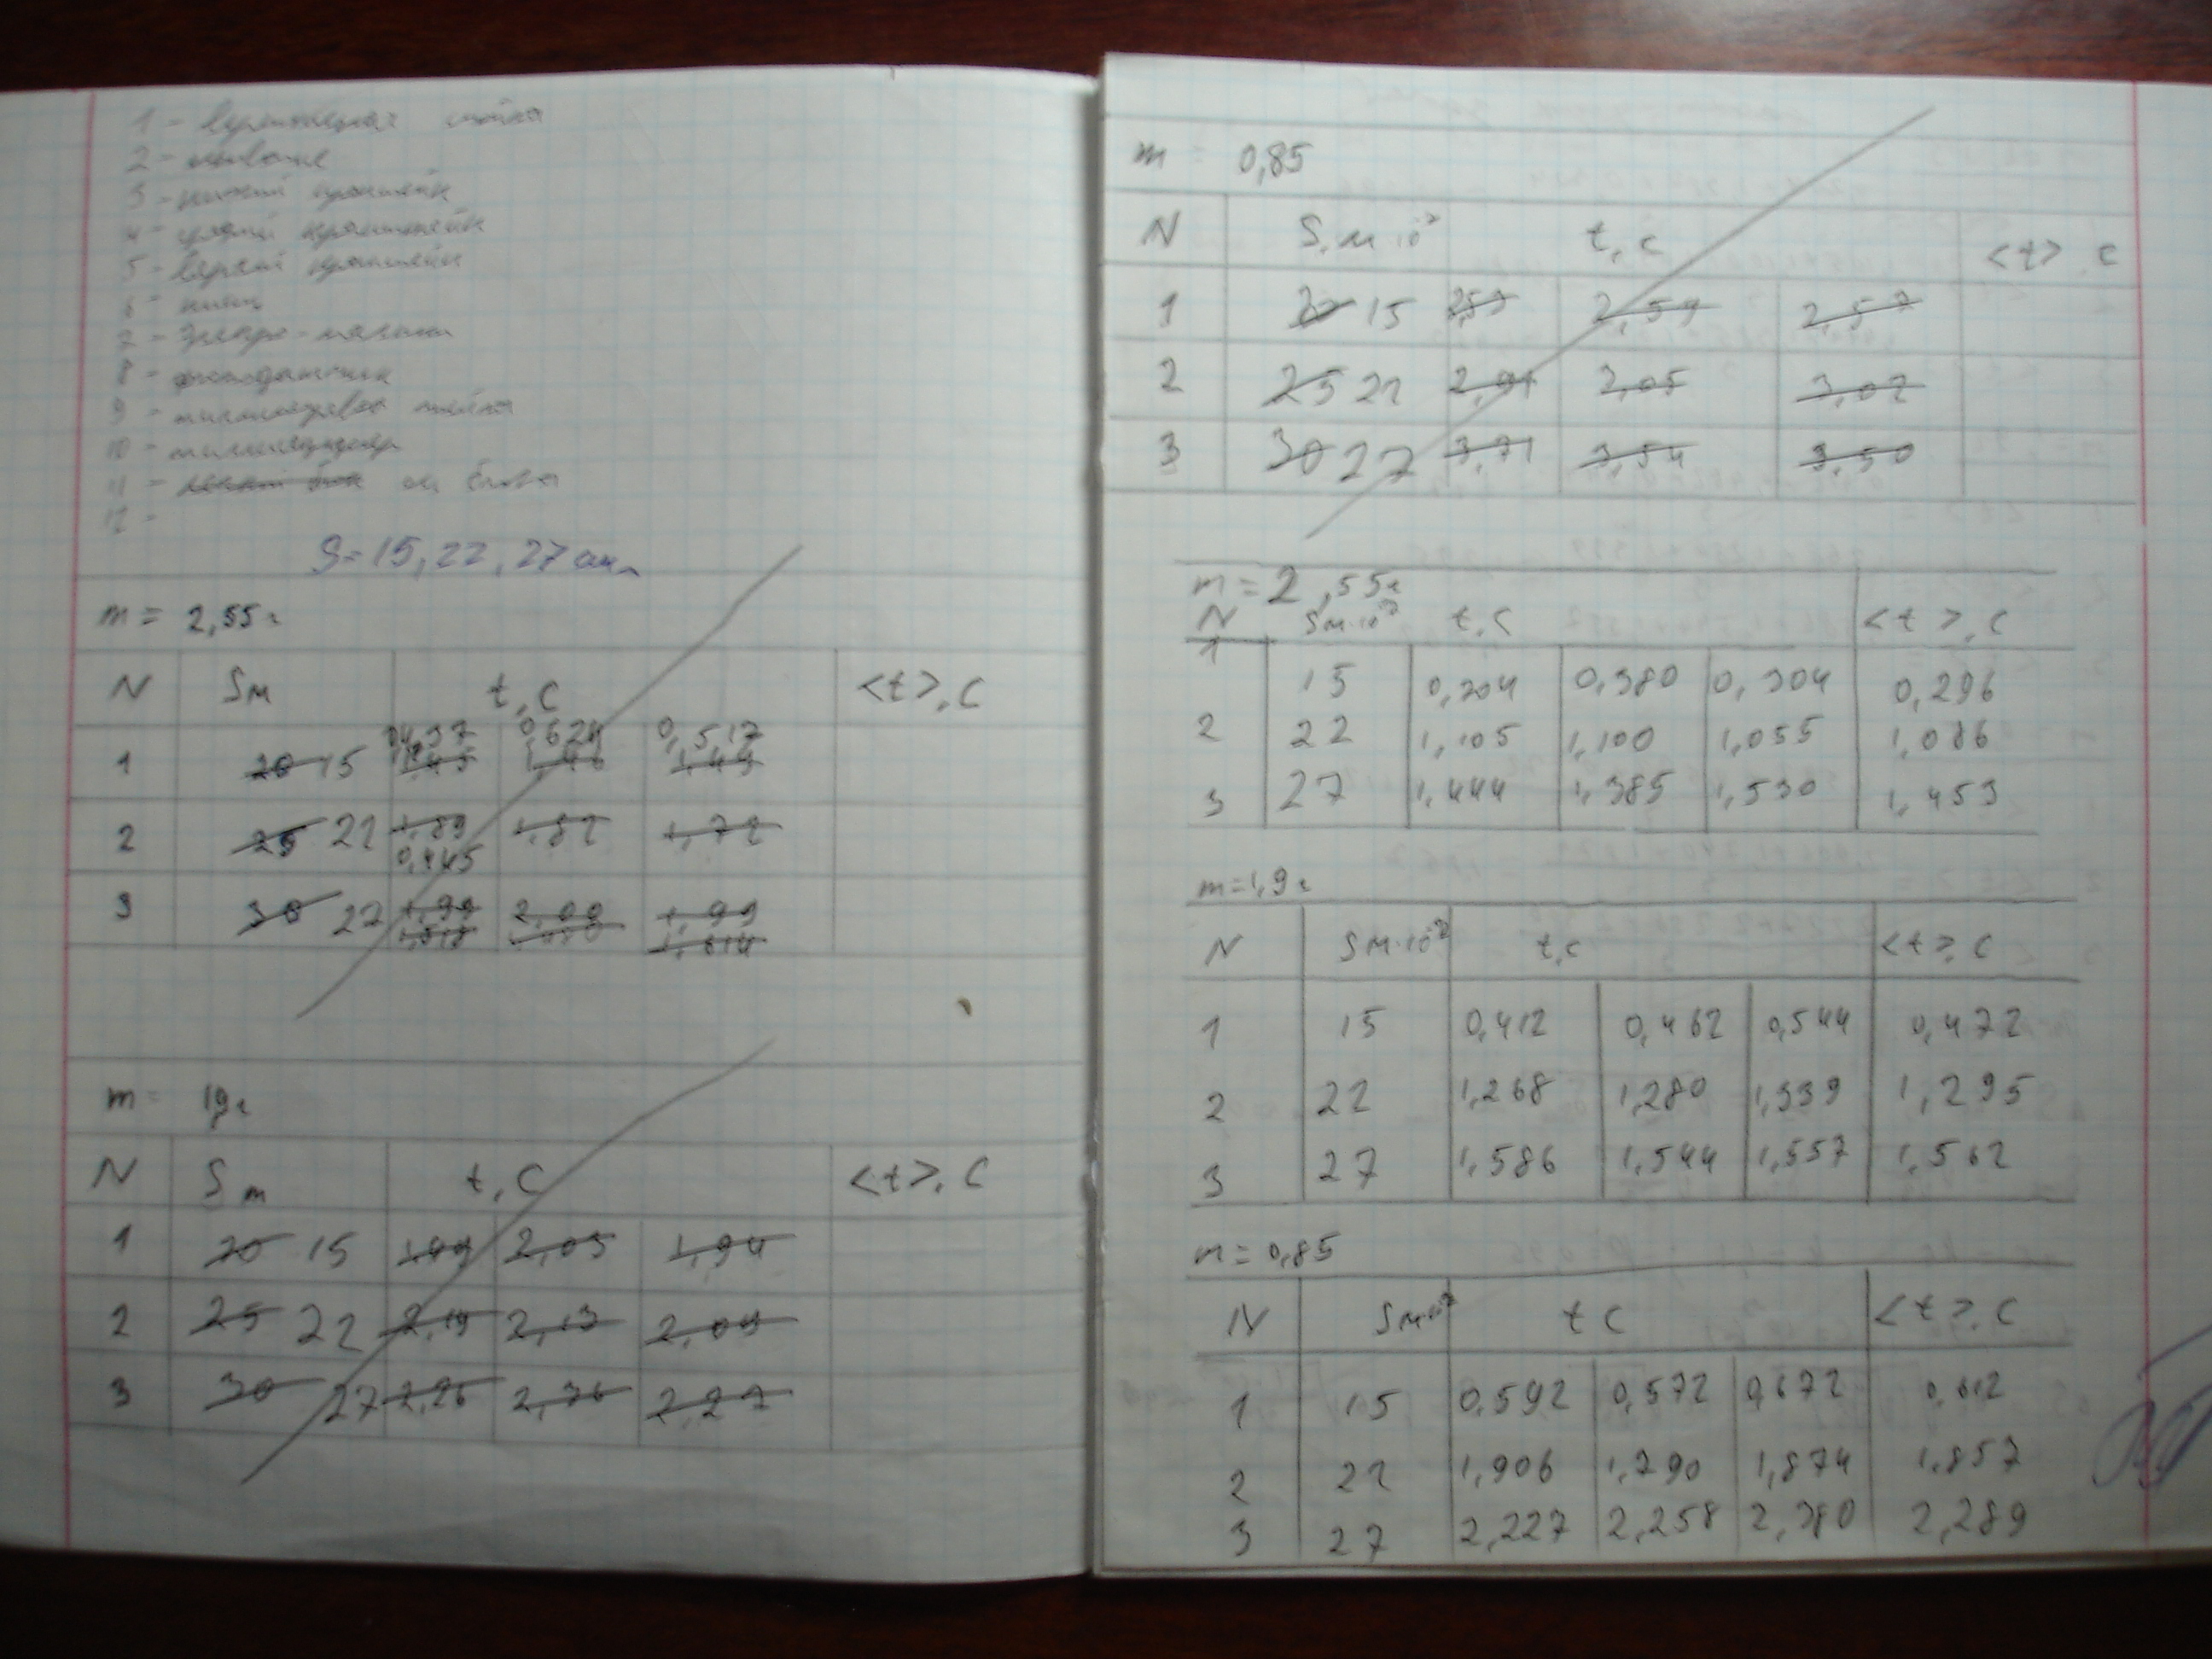 1 - вертикальная стойка
2 - основание
3 - нижний кронштейн
4 - средний кронштейн
5 - верхний кронштейн
6 -
7 - электро-магнит
8 - фотодатчик
9 - миллиметровая шкала
10 - миллисекундомер
11 - блока
12 -
S = 15, 22, 27 см
m = 2,55 г
N Sм t, С <t>, С
1 20 15 1,45 0,624 0,517
2 25 22 1,89 1,82 1,72
0,445
3 30 27 1,99 2,00 1,99
m = 1,9 г
N Sм t, С <t>, С
1 20 15 1,99 2,05 1,94
2 25 22 2,19 2,13 2,09
3 30 27 2,26 2,36 2,27
m = 0,85
N S, м 10² t, с <t> с
1 20 15 2,57 2,59 2,57
2 25 22 2,91 3,05 3,02
3 30 27 3,71 3,54 3,50
m = 2,55 г
N Sм·10² t, С <t>, С
1 15 0,204 0,380 0,304 0,296
2 22 1,105 1,100 1,055 1,086
3 27 1,444 1,385 1,530 1,453
m = 1,9 г
N Sм·10² t, с <t>, С
1 15 0,412 0,462 0,544 0,472
2 22 1,268 1,280 1,339 1,295
3 27 1,586 1,544 1,557 1,562
m = 0,85
N Sм·10² t С <t>, С
1 15 0,592 0,572 0,672 0,612
2 22 1,906 1,790 1,874 1,857
3 27 2,227 2,258 2,380 2,289